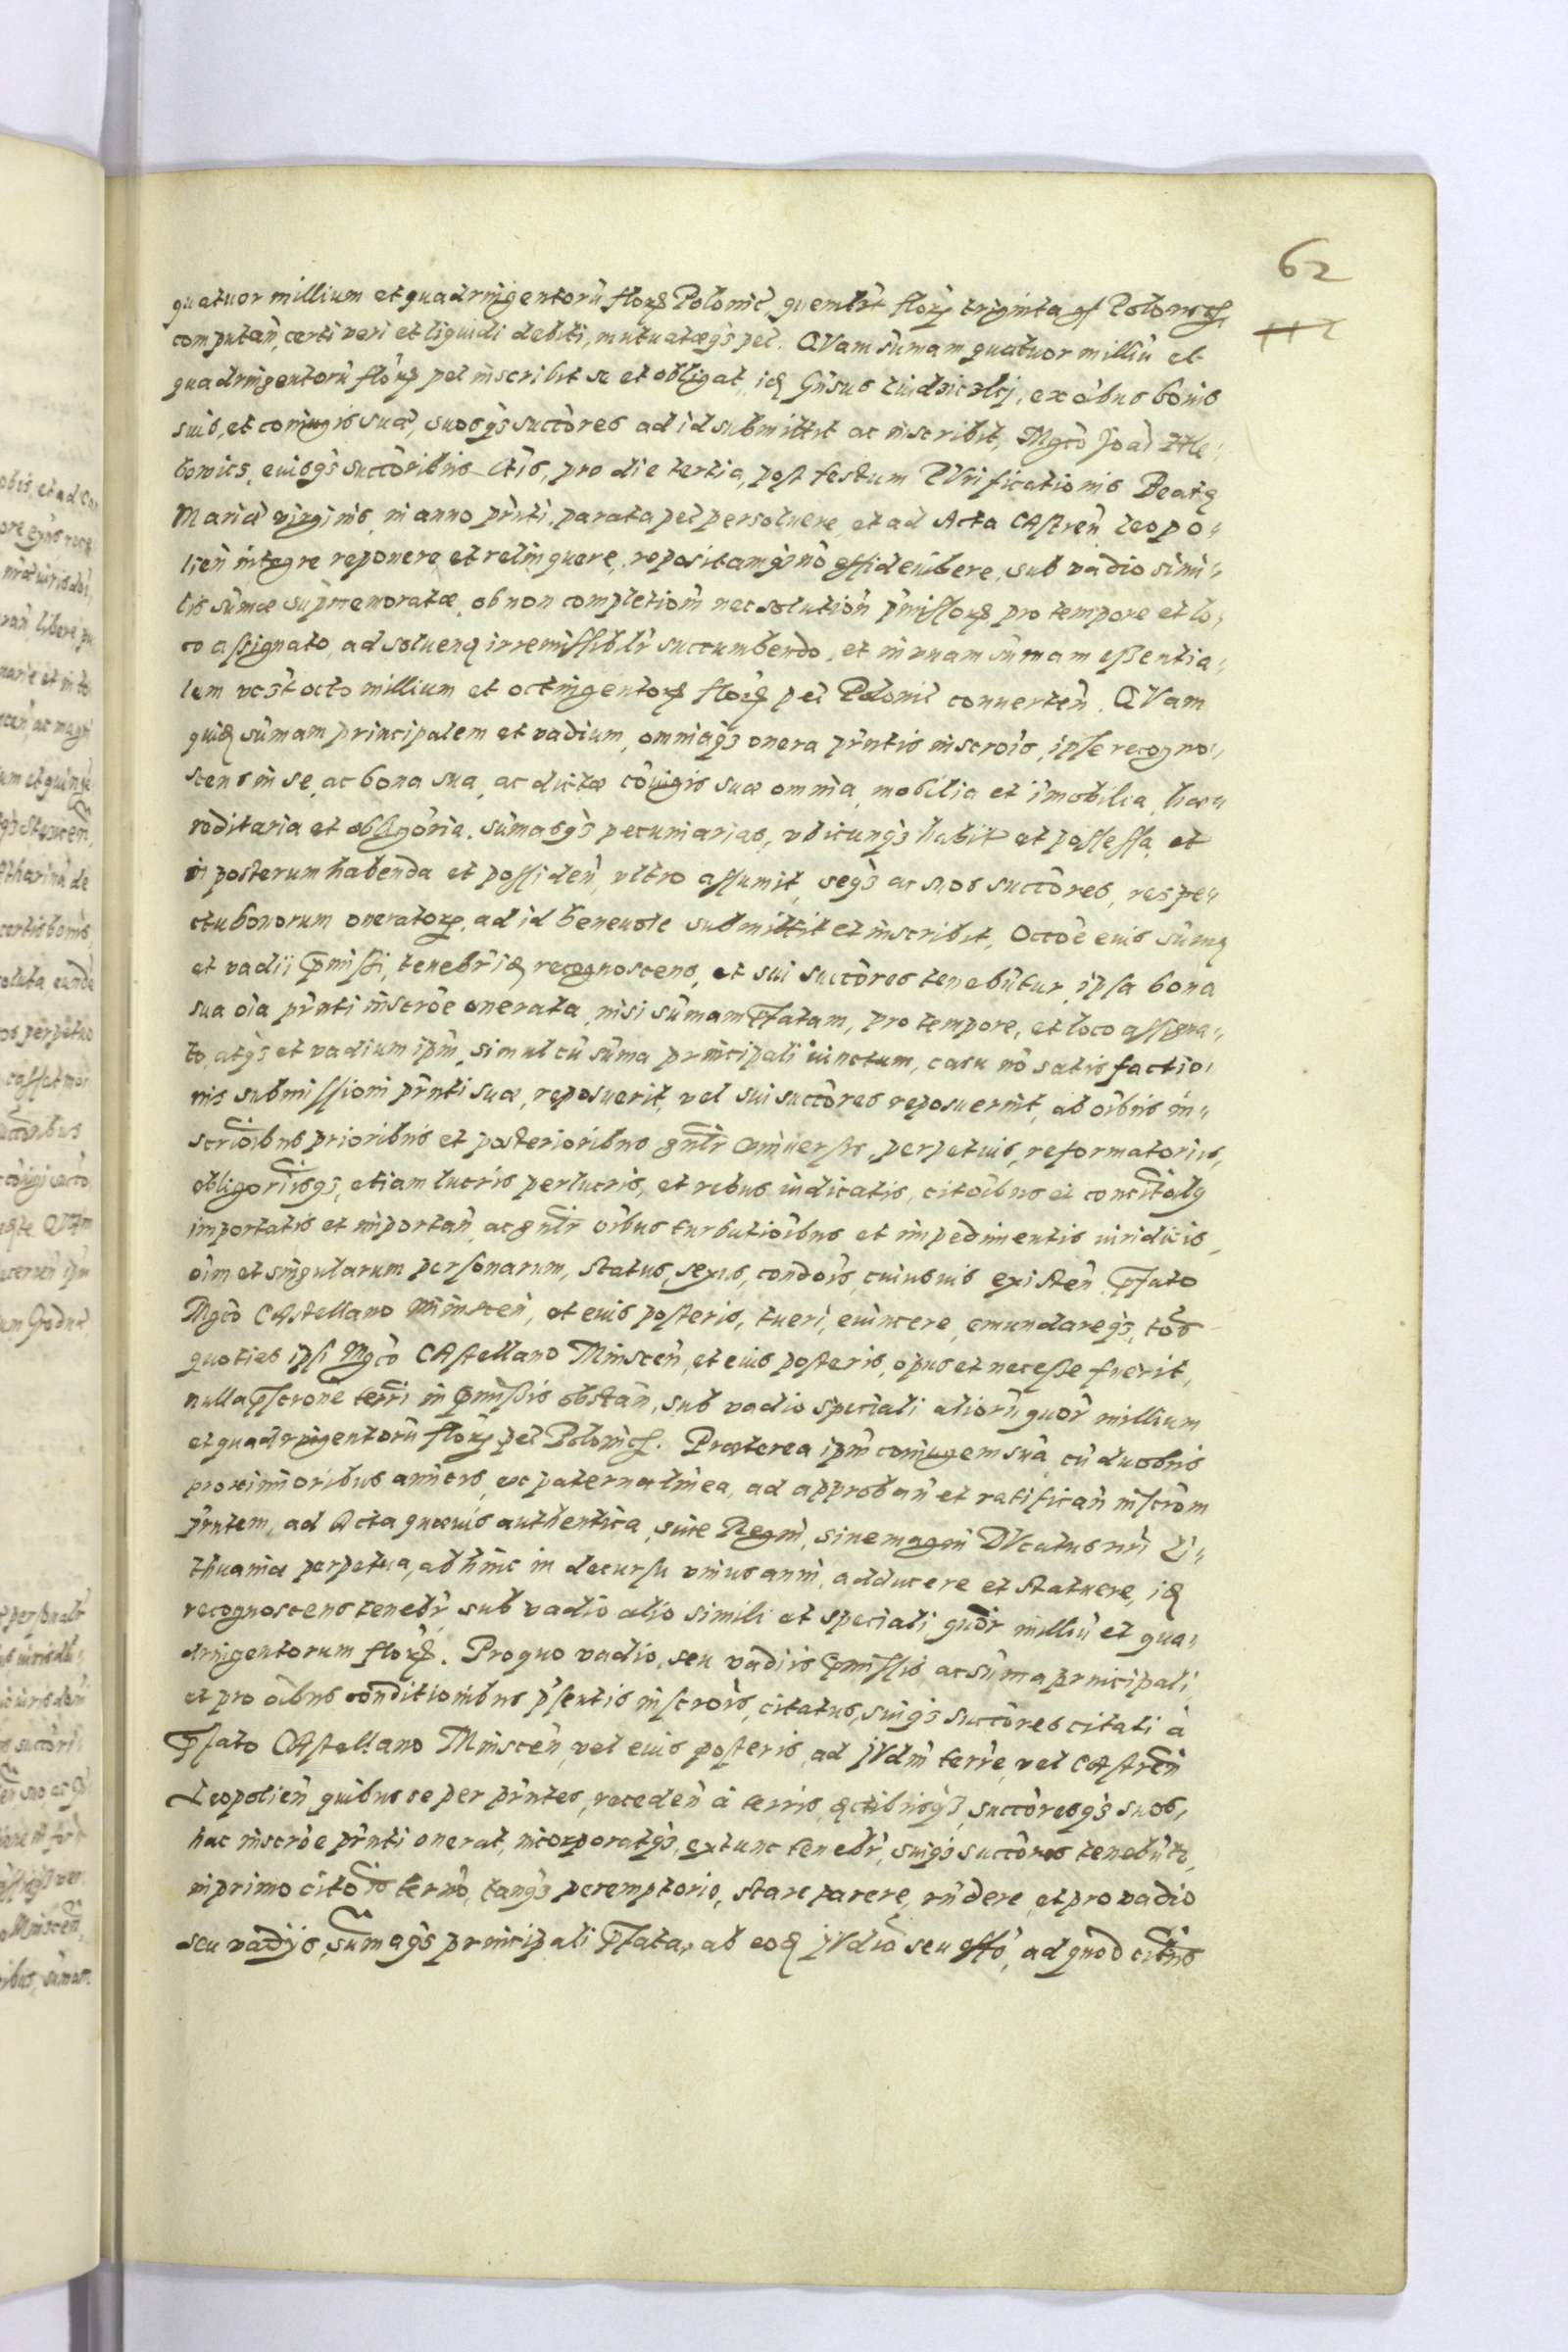 62
quatuor millium et quadringentorũ florꝝ Polonic̃, quemlr̃t florꝝ triginta gr̃ Polonicꝝ
computan̄, certi veri et liquidi debiti, mutuatæq̃ pec̃. QVam sum̃am quatuor milliũ et
quadringentorũ florꝝ pec̃ inscribit se et obligat, idẽ Gn̄sus, ex oĩbus bonis
suis, et coniugis suæ, suosq̃ succ̃ores ad id submittit ac inscribit, Mgc̃o Joañ Hle-
bowicz, eiusq̃ succ̃oribus ltĩs, pro die tertia, post festum PVrificationis Beatę
Mariæ virginis, in anno pr̃nti, parata pec̃ persoluere, et ad Acta CAstren̄ Leopo-
lien̄ integre reponere et relinquere, repositamq̃ nõ, sub vadio simi-
lis sum̃æ supræmoratæ, ob non completiom̃ nec solutiom̃ pr̃missorꝝ pro tempore et lo-
co assignato, ad soluenđ irremissiblr̃ succumbendo, et in vnam sum̃am essentia-
lem vcz̃t octo millium et octingentorꝝ florꝝ pec̃ Polonic̃ conuerten̄. QVam
quiđ sum̃am principalem et vadium, omniaq̃ onera pr̃ntis inscrõis, ipse recogno-
scens in se, ac bona sua, ac dictæ cõiugis suæ omnia, mobilia et im̃obilia, hæ-
reditaria et obligõria, sum̃asq̃ pecuniarias, vbicunq̃ habita et possessa, et
in posterum habenda et possiden̄, vltro assumit, seq̃ ac suos succ̃ores, respe-
ctu bonorum oneratorꝝ, ad id beneuole submittit et inscribit, Occõe eius sum̃ę
et vadii p̃missi, tenebr̃ idẽ recognoscens, et sui succ̃ores tenebũtur, ipsa bona
sua oĩa pr̃nti inscrõe onerata, nisi sum̃am p̃fatam, pro tempore, et loco assigna-
to, atq̃ et vadium ipm̃, simul cũ sum̃a principali iunctum, casu nõ satisfactio-
nis submissioni pr̃nti suæ, reposuerit, vel sui succ̃ores reposuerint, ab oĩbus in-
scriõibus prioribus et posterioribus gn̄lr̃ vniuersis, perpetuis, reformatoriis,
obligoriisq̃, etiam lucris perlucris, et rebus iudicatis, citõibus et concitõib9
importatis et importan̄, ac gn̄lr̃ oĩbus turbutiõibus et impedimentis iuridicis,
oĩm et singularum personarum, status, sexus, condõis, cuiusuis existen̄ p̃fato
Mgc̃o CAstellano Minscen̄, et eius posteris, tueri, euincere, emundareq̃, tõs
quoties ipsi Mgc̃o CAstellano Minscen̄, et eius posteris, opus et necesse fuerit,
nulla p̃scrone terri in p̃missis obstan̄, sub vadio speciali aliorũ quor̃ millium
et quadringentorũ florꝝ pec̃ Polonicꝝ. Præterea ipm̃ coniugem suã, cũ duobus
proximioribus amicis, ex paterna linea, ad approban̄ et ratifican̄ inscrõm
pr̃ntem, ad Acta quæuis authentica, siue Regni, siue magni DVcatus nr̃i Li-
thuaniæ perpetua, ab hinc in decursu vnius anni, adducere et statuere, idẽ
recognoscens tenebr̃, sub vadio alio simili et speciali, quor̃ milliũ et qua-
dringentorum florꝝ. Pro quo vadio, seu vadiis p̃missis ac sum̃a principali
et pro oĩbus conditionibus p̃sentis inscrõis, citatus, suiq̃ succ̃ores citati à
p̃fato CAstellano Minscen̄, vel eius posteris, ad jVdm̃ terr̃e, vel CAstren̄
Leopolien̄ quibus se per pr̃ntes, receden̄ à terris, q̃ctibusq̃, succ̃oresq̃ suos,
hac inscrõe pr̃nti onerat, incorporatq̃, extunc tenebr̃, suiq̃ succ̃ores tenebũtr̃,
in primo citõis termo, tanq̃ peremptorio, stare parere, rñdere, et pro vadio
seu vadijs, sum̃aq̃ principali p̃fata, ab eođ jVdio seu offo, ad quod citus